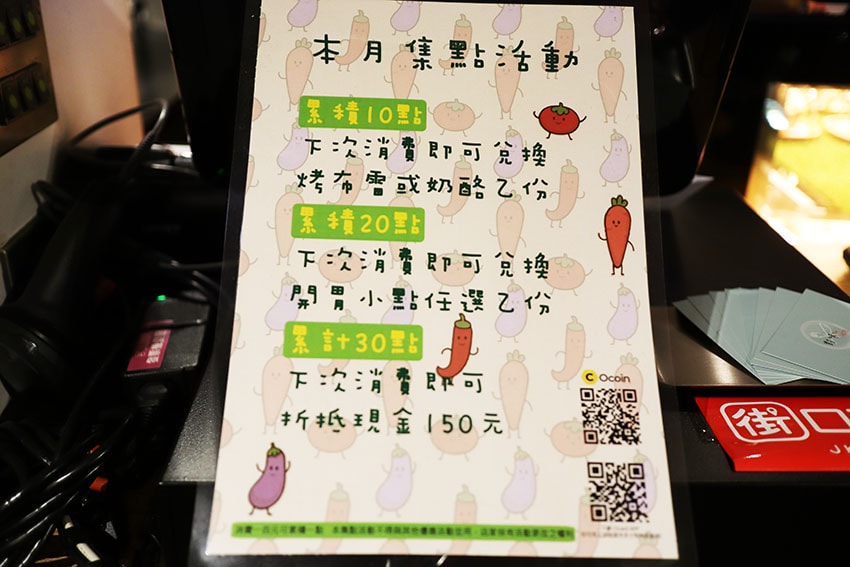 本月集點活動
累積10點
下次消費即可兌換
烤布雷或奶酪乙份
累積20點
下次消費即可兌換
開胃小點任選乙份
累計30點
下次消費即可
折抵現金150元
Ocoin
消費一百元可累積一點 本集點活動不得與其他優惠活動並用，店家保有活動更改之權利
街口